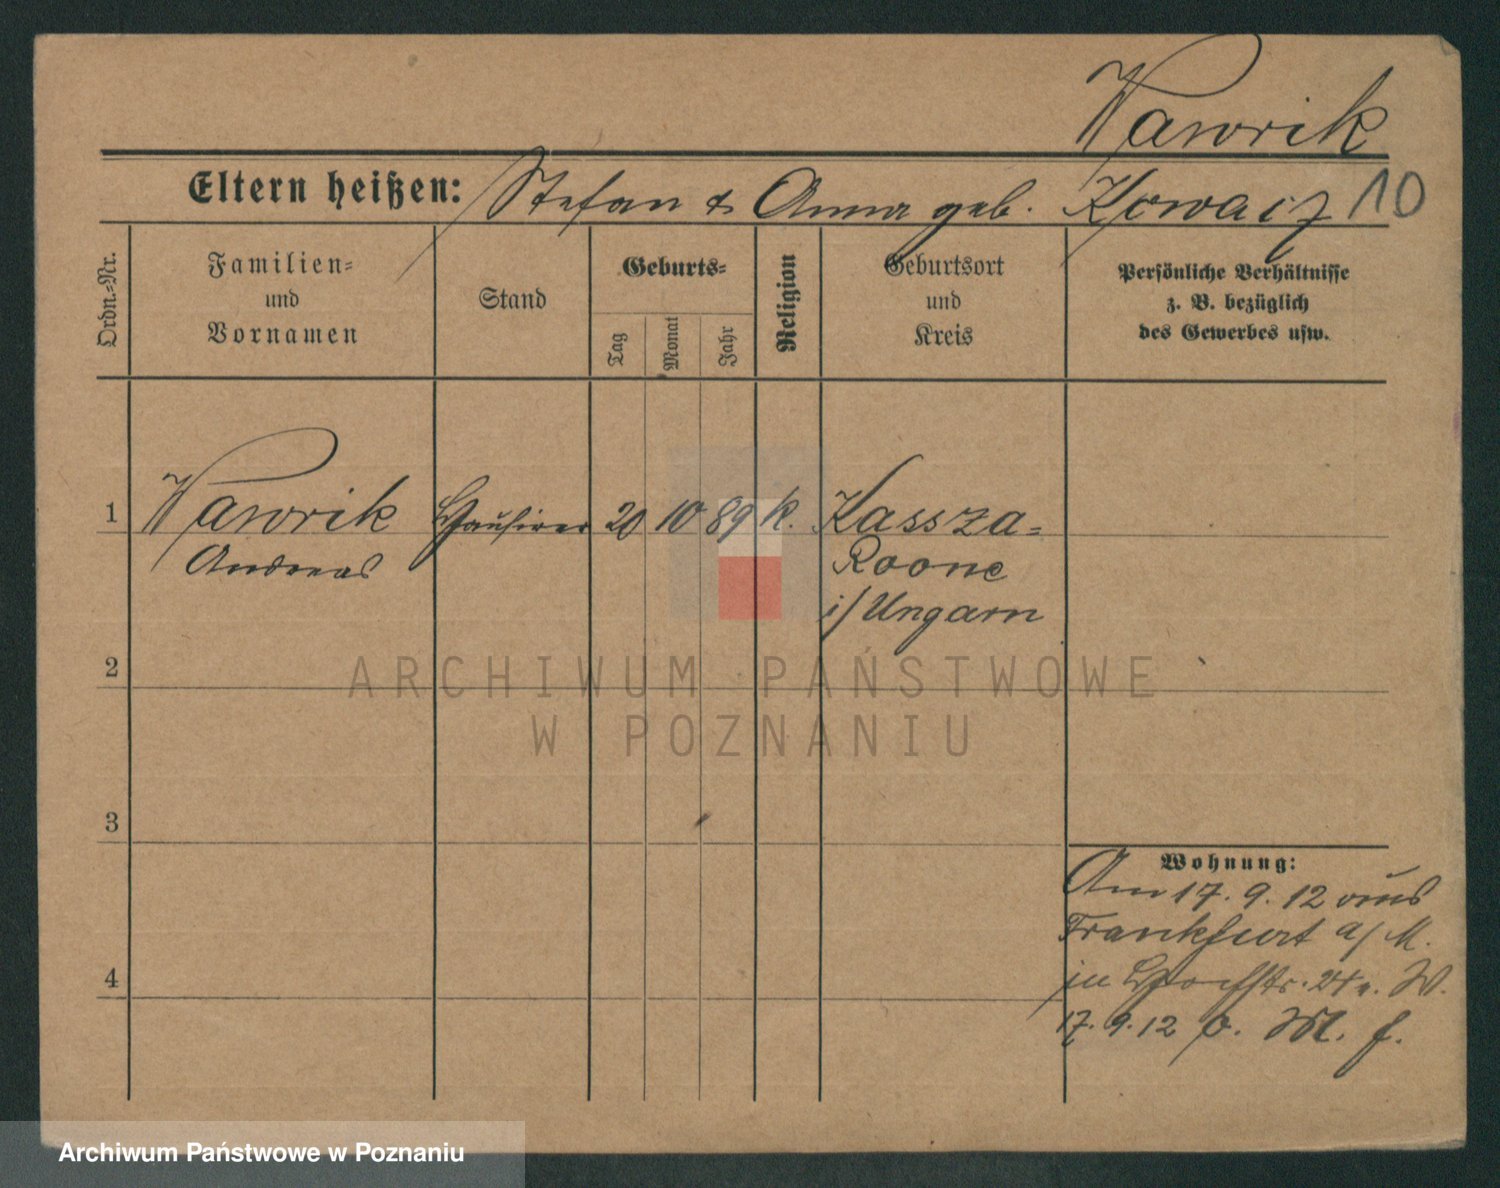 Wawrik
Eltern heißen: Stefan & Anna geb. Kowacz 10
Ordn.-Nr.
Familien-
und
Vornamen
Stand
Geburts-
Tag
Monat
Jahr
Religion
Geburtsort
und
Kreis
Persönliche Verhältnisse
z. B. bezüglich
des Gewerbes usw.
1 Wawrik Hausirer 20 10 89 k. Kassza-
Andreas Roone
i/Ungarn
2
ARCHIWUM PAŃSTWOWE
W POZNANIU
3
Wohnung:
Am 17. 9. 12 aus
Frankfurt a/M.
in 24 v. W.
4
17. 9. 12 o. M. f.
Archiwum Państwowe w Poznaniu